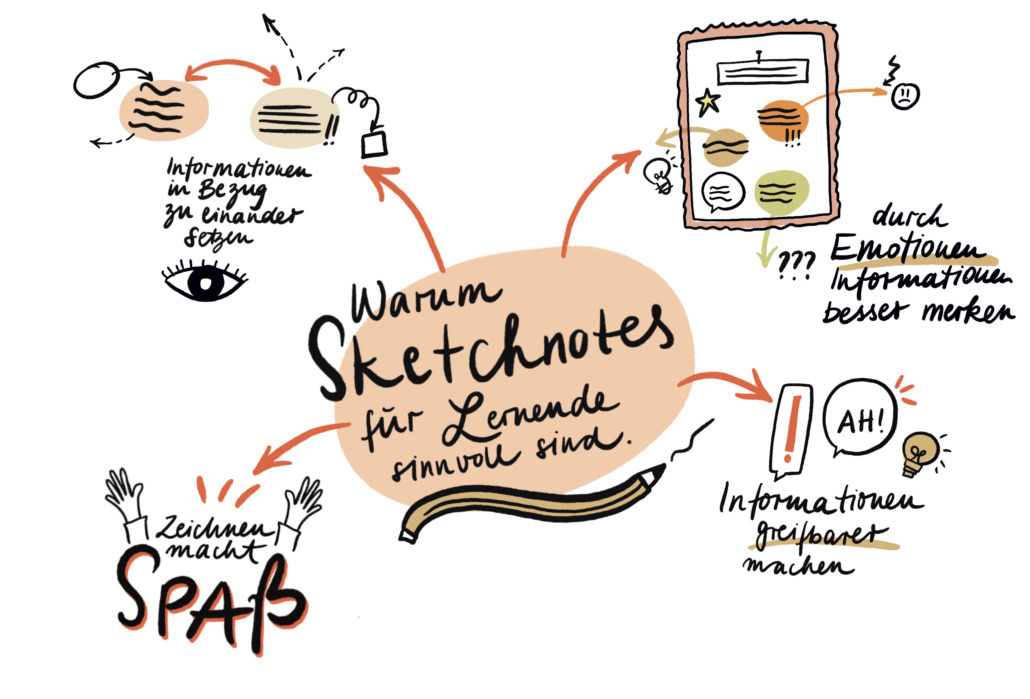 Informationen
in Bezug
zu einander
setzen
!!
!!!
???
durch
Emotionen
Informationen
besser merken
Warum
Sketchnotes
für Lernende
sinnvoll sind.
!
AH!
Informationen
greifbarer
machen
Zeichnen
macht
SPAß